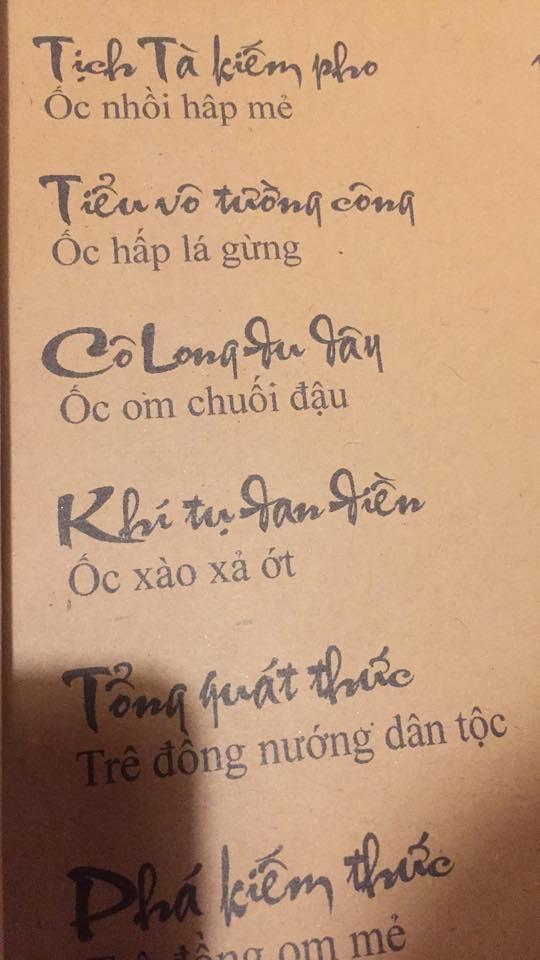 Tịch Tà kiếm pho
Ốc nhồi hâp mẻ
Tiểu vô tường công
Ốc hấp lá gừng
Cô Long du đâu
Ốc om chuối đậu
Khí tụ đan điền
Ốc xào xả ớt
Tổng quát thức
Trê đồng nướng dân tộc
Phá kiếm thức
Trê đồng om mẻ